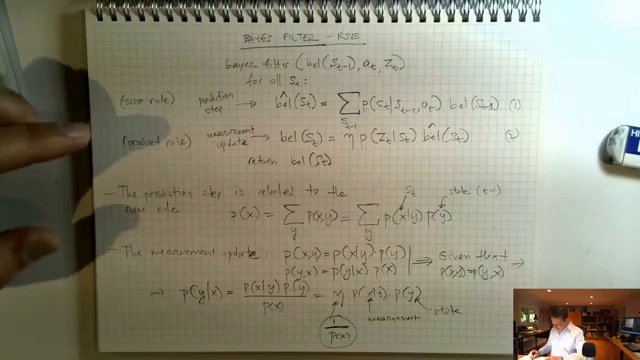 BAYES FILTER - RSE
bayes-filter (bel(S_{t-1}), a_t, Z_t)
for all S_t:
(sum rule) prediction step → bel̂(S_t) = ∑_{S_{t-1}} p(S_t|S_{t-1}, a_t) bel(S_{t-1}) (1)
(product rule) measurement update → bel(S_t) = η p(Z_t|S_t) bel̂(S_t) (2)
return bel(S_t)
S_t state (t-1)
- The prediction step is related to the
sum rule p(x) = ∑_y p(x,y) = ∑_y p(x|y) p(y)
- The measurement update: p(x,y) = p(x|y) · p(y) ⟹ Given that
p(y,x) = p(y|x) p(x) p(x,y) = p(y,x) ⟹
⟹ p(y|x) = p(x|y) p(y) / p(x) = η p(x|y) · p(y)
measurement state
1 / p(x)